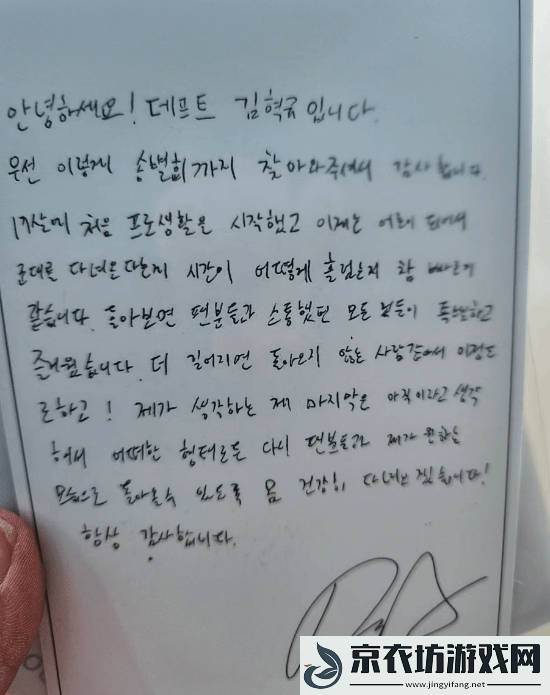 안녕하세요! 데프트 김혁규입니다.
우선 이렇게 송별회까지 찾아와주셔서 감사합니다.
17살에 처음 프로생활을 시작했고 이제는 어른이 되어서
군대를 다녀온다는지 시간이 어떻게 흘렀는지 참 빠르게
같습니다. 돌아보면 팬분들과 소통했던 모든 것들이 특별하고
즐거웠습니다. 더 길어지면 돌아오지 않는 사람같아서 이정도
로하고! 제가 생각하는 제 마지막은 아직이라고 생각
해서 어떠한 형태로든 다시 팬분들과 제가 원하는
모습으로 돌아올수 있도록 몸 건강히 다녀오겠습니다!
항상 감사합니다.
京衣坊游戏网
www.jingyifang.net